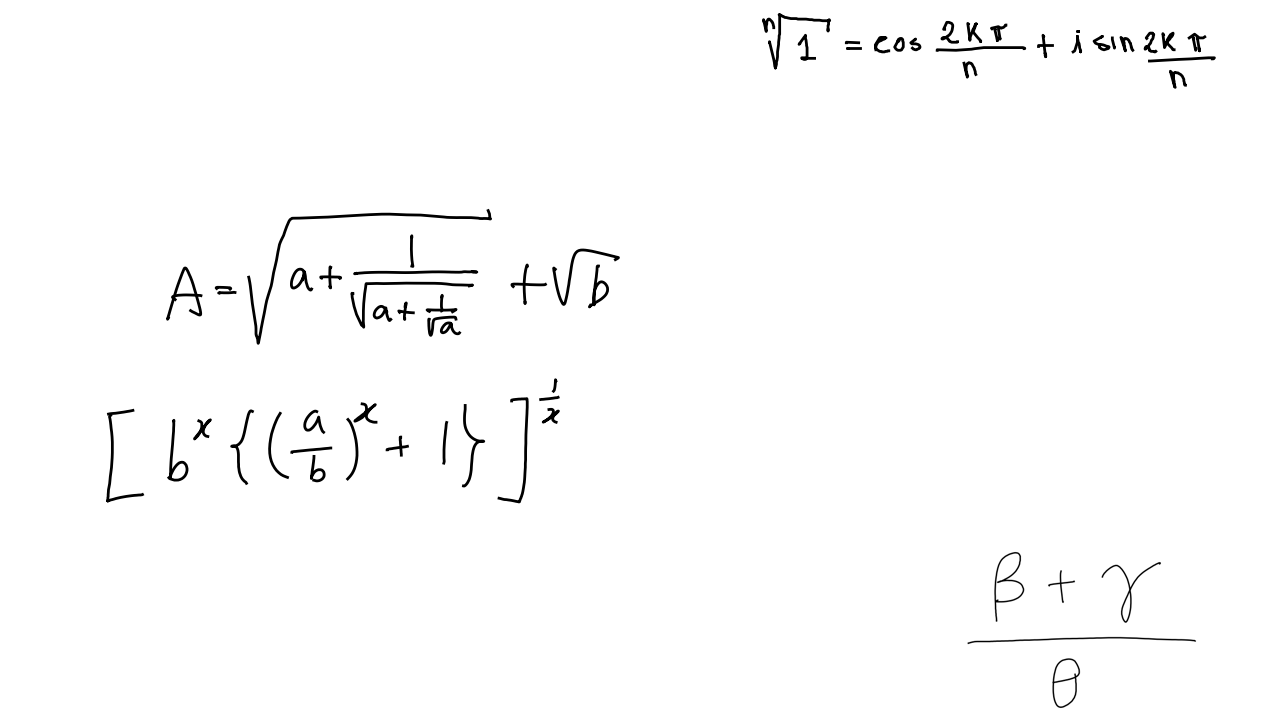 \sqrt[n]{1} = \cos \frac{2k\pi}{n} + i \sin \frac{2k\pi}{n}
A = \sqrt{a + \frac{1}{\sqrt{a + \frac{1}{\sqrt{a}}}}} + \sqrt{b}
\left[ b^x \left\{ \left( \frac{a}{b} \right)^x + 1 \right\} \right]^{\frac{1}{x}}
\frac{\beta + \gamma}{\theta}